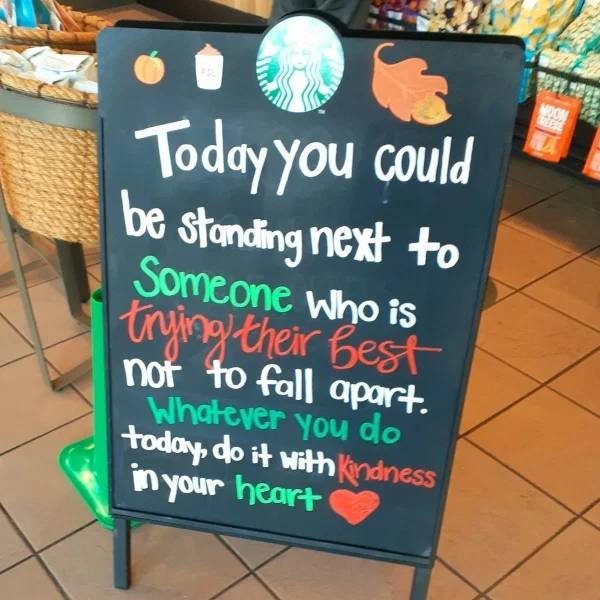 PSL
Today you could
be standing next to
Someone who is
trying their Best
not to fall apart.
Whatever you do
today, do it with Kindness
in your heart
MOON
CHEESE